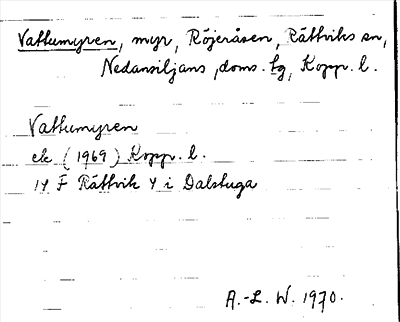 Vattumyren, myr, Röjeråsen, Rättviks sn,
Nedansiljans doms. tg, Kopp. l.
Vattumyren
ek (1969) Kopp. l.
14 F Rättvik 4 i Dalstuga
A.-L. W. 1970.